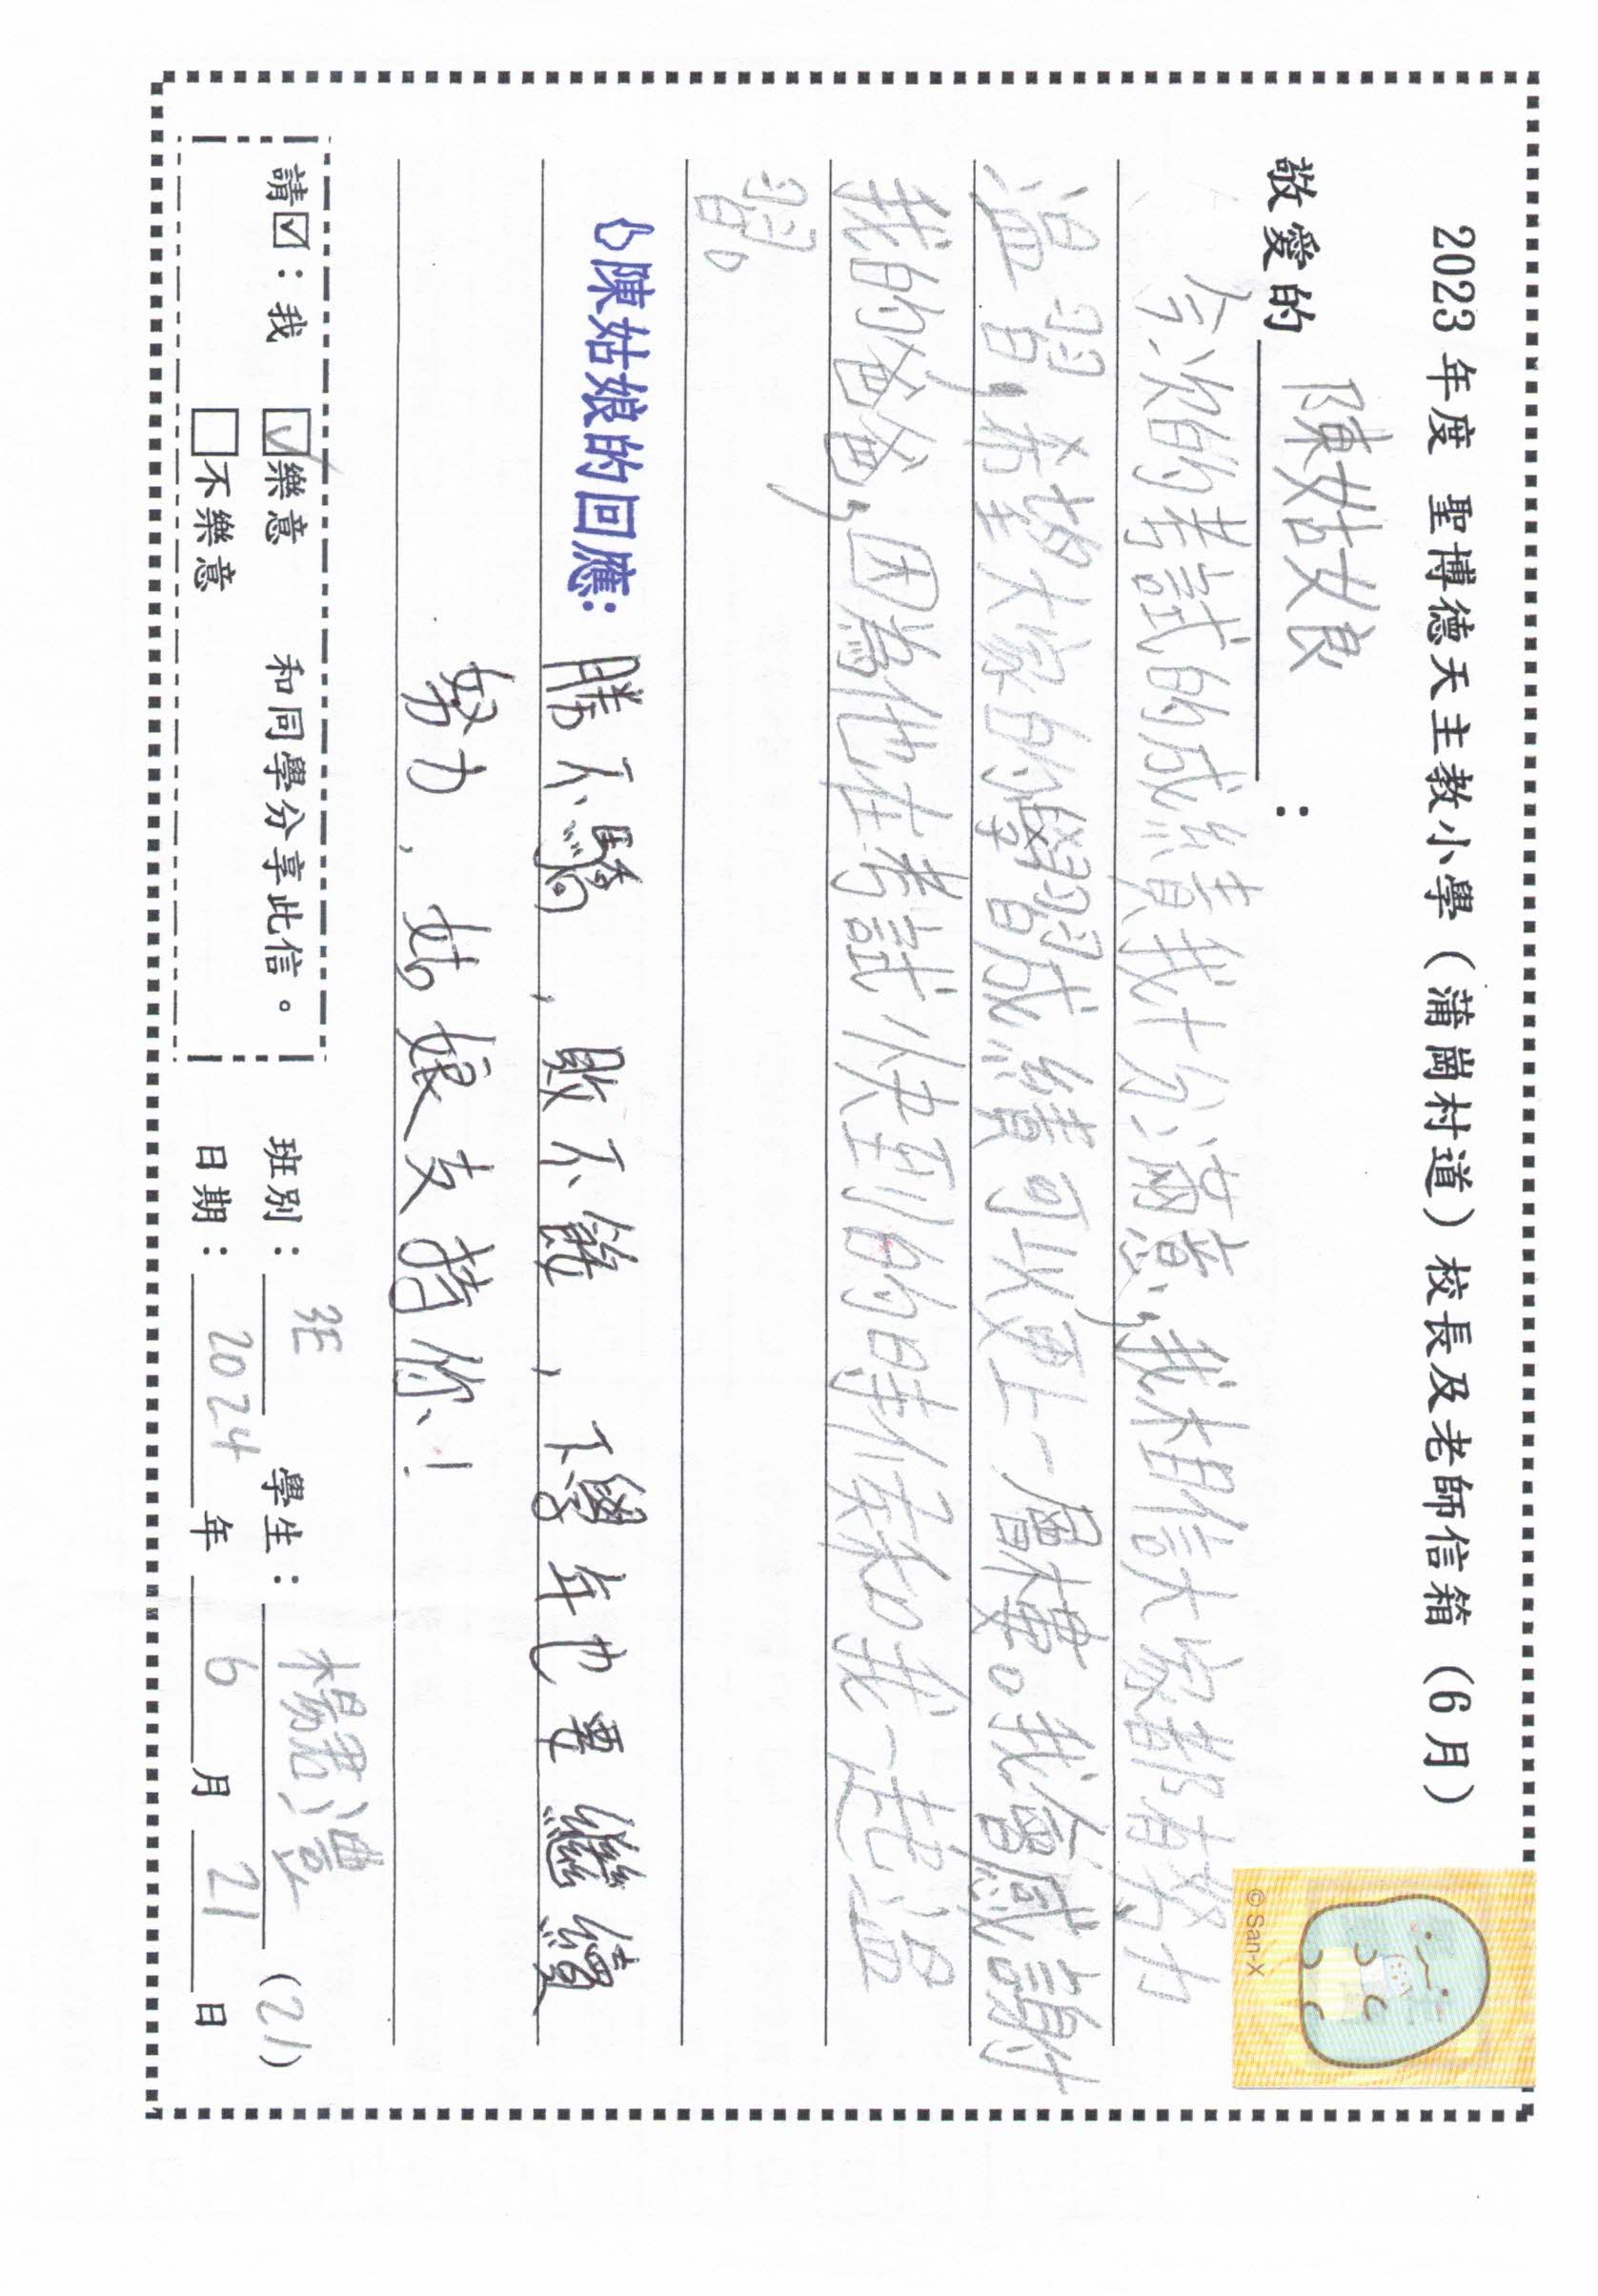 2023 年度 聖博德天主教小學（蒲崗村道）校長及老師信箱（6月）
敬愛的 陳姑娘 ：
今次的考試的成績我十分滿意，我相信大家都有努力
温習，希望大家的學習成績可以更上一層樓。我會感謝
我的爸爸，因為他在考試快到的時候和我一起温
習。
陳姑娘的回應：勝不驕，敗不餒，下學年也要繼續
努力，姑娘支持你！
請☑：我 ☑樂意 和同學分享此信。 班別： 3E 學生： 楊君灃 (21)
□不樂意 日期： 2024 年 6 月 21 日
© San-X